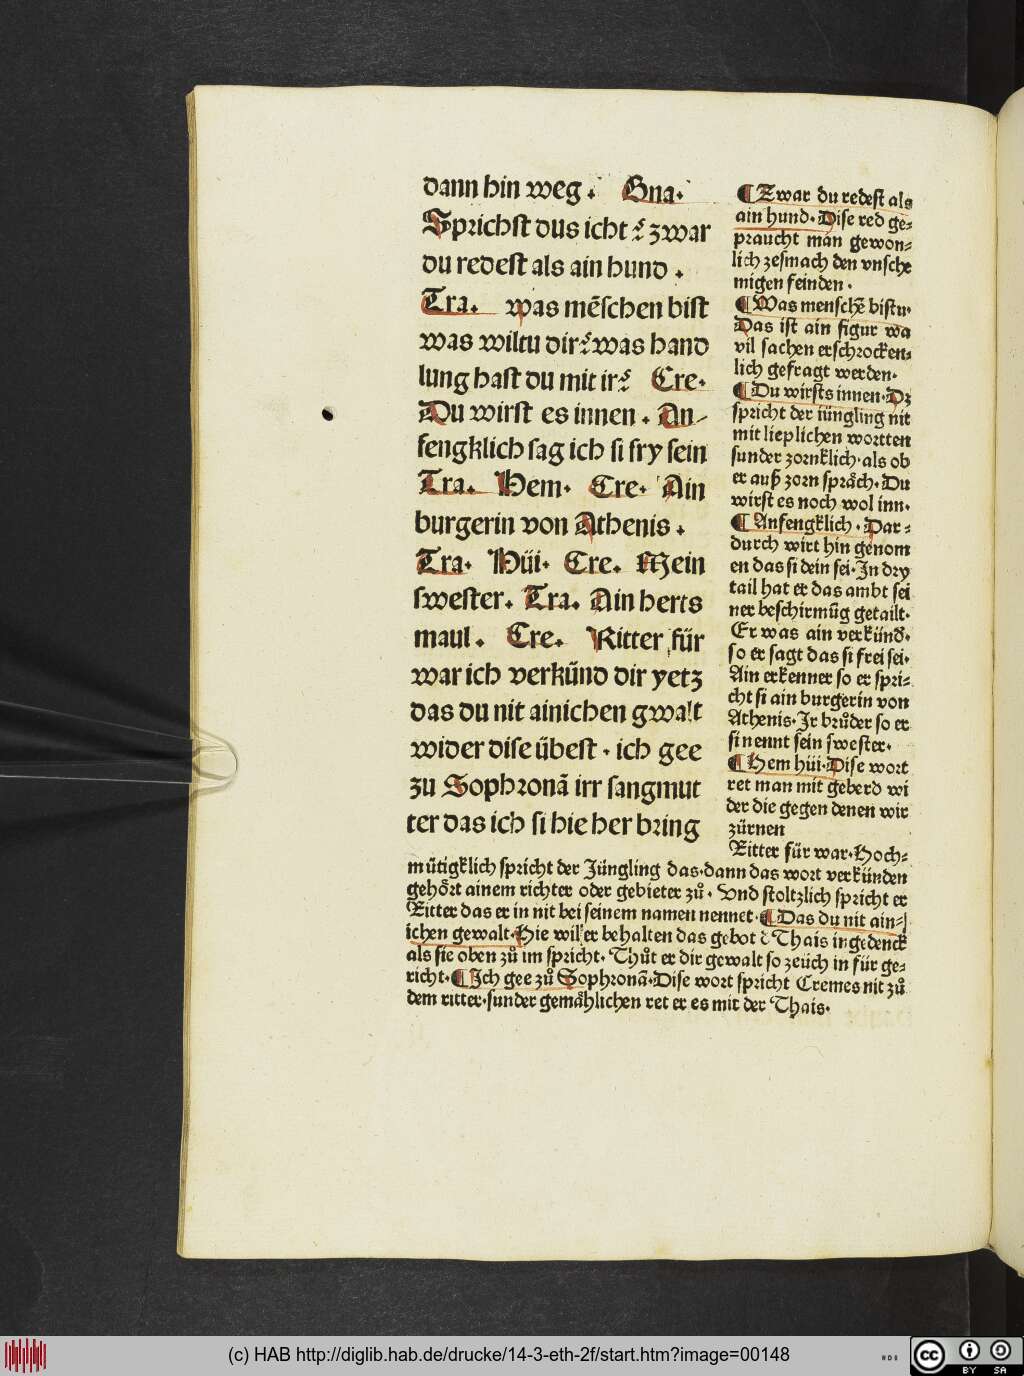 dann hin weg . Gna.
Sprichst dus icht ? zwar
du redest als ain hund .
Tra. was mẽschen bist
was wiltu dir? was hand
lung hast du mit ir? Cre.
Du wirst es innen . An-
fengklich sag ich si fry sein
Tra. Hem. Cre. Ain
burgerin von Athenis .
Tra. Hüi. Cre. Mein
swester. Tra. Ain herts
maul . Cre. Ritter für
war ich verkünd dir yetz
das du nit ainichen gwalt
wider dise übest . ich gee
zu Sophronã irr sangmut
ter das ich si hie her bring
¶ Zwar du redest als
ain hund. Dise red ge⸗
praucht man gewon⸗
lich zesmach den vnsche
migen feinden .
¶ Was menschẽ bistu.
Das ist ain figur wa
vil sachen erschrocken⸗
lich gefragt werden.
¶ Du wirsts innen. Dz
spricht der iüngling nit
mit lieplichen wortten
sunder zornklich. als ob
er auß zorn språch. Du
wirst es noch wol inn.
¶ Anfengklich . Dar⸗
durch wirt hin genom
en das si dein sei. In dry
tail hat er das ambt sei
ner beschirmũg getailt.
Er was ain verkünd̾.
so er sagt das si frei sei.
Ain erkenner so er spri⸗
cht si ain burgerin von
Athenis. Ir brůder so er
si nennt sein swester.
¶ Hem hüi. Dise wort
ret man mit geberd wi
der die gegen denen wir
zürnen
Ritter für war. Hoch⸗
mütigklich spricht der Jüngling das. dann das wort verkünden
gehört ainem richter oder gebieter zů . Vnd stoltzlich spricht er
Ritter das er in nit bei seinem namen nennet. ¶ Das du nit ain⸗
ichen gewalt. Hie wil er behalten das gebot d̾ Thais ingedenck
als sie oben zů im spricht. Thůt er dir gewalt so zeüch in für ge⸗
richt. ¶ Ich gee zů Sophronã. Dise wort spricht Cremes nit zů
dem ritter. sunder gemåhlichen ret er es mit der Thais.
(c) HAB http://diglib.hab.de/drucke/14-3-eth-2f/start.htm?image=00148
cc BY SA